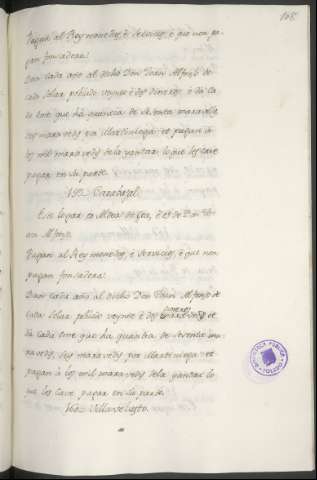 108
Pagan al Rey monedas, è servicios, è que non pa-
gan fonsadera:
Dan cada año al dicho Don Joan Alfonso de
cada solar poblado veynte è dos dineros è dà ca-
da ome que ha quantia de setenta maravedis
seis maravedis por martiniega: et pagan à
los mil maravedis de la yantar, lo que les cave
pagar en su parte.
Este logar es et es de Don Joan
Alfonso
Pagan al Rey monedas, è servicios, è que non
pagan fonsadera:
Dan cada año al dicho Don Joan Alfonso de
cada solar poblado veynte è dos dineros et
dà cada ome que ha quantia de setenta mara-
vedis, seis maravedis por martiniega: et
pagan à los mil maravedis de la yantar lo
que les cave pagar en su parte.
BIBLIOTECA PUBLICA
TOLEDO